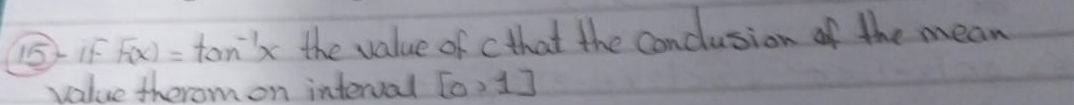 15- if F(x) = tan⁻¹x the value of c that the conclusion of the mean
value therom on interval [0,1]